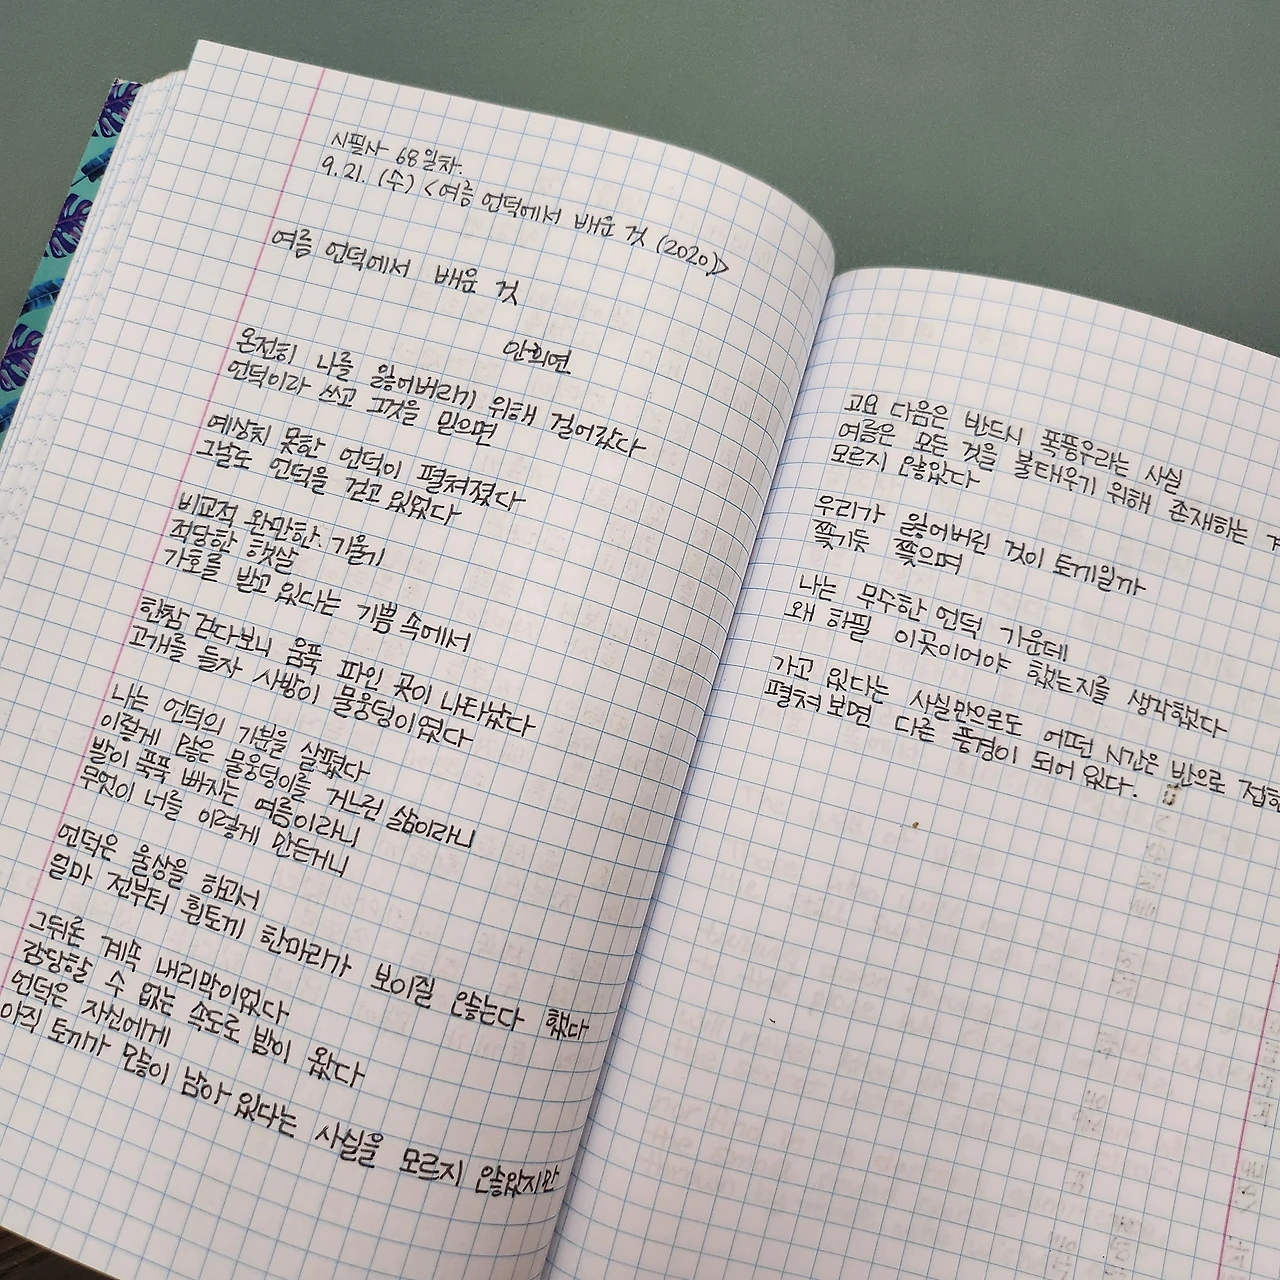 시필사 68일차.
9. 21. (수) <여름 언덕에서 배운 것 (2020)>
여름 언덕에서 배운 것
안희연
온전히 나를 잃어버리기 위해 걸어갔다
언덕이라 쓰고 그것을 믿으면
예상치 못한 언덕이 펼쳐졌다
그날도 언덕을 걷고 있었다
비교적 완만한 기울기
적당한 햇살
가호를 받고 있다는 기쁨 속에서
한참 걷다보니 움푹 파인 곳이 나타났다
고개를 들자 사방이 물웅덩이였다
나는 언덕의 기분을 살폈다
이렇게 많은 물웅덩이를 거느린 삶이라니
발이 푹푹 빠지는 여름이라니
무엇이 너를 이렇게 만든거니
언덕은 울상을 하고서
얼마 전부터 흰토끼 한마리가 보이질 않는다 했다
그뒤론 계속 내리막이었다
감당할 수 없는 속도로 밤이 왔다
언덕은 자신에게
아직 토끼가 많이 남아 있다는 사실을 모르지 않았지만
고요 다음은 반드시 폭풍우라는 사실
여름은 모든 것을 불태우기 위해 존재하는
모르지 않았다
우리가 잃어버린 것이 토끼일까
쫓기듯 쫓으며
나는 무수한 언덕 가운데
왜 하필 이곳이어야 했는지를 생각했다
가고 있다는 사실만으로도 어떤 시간은 반으로
펼쳐보면 다른 풍경이 되어 있다.